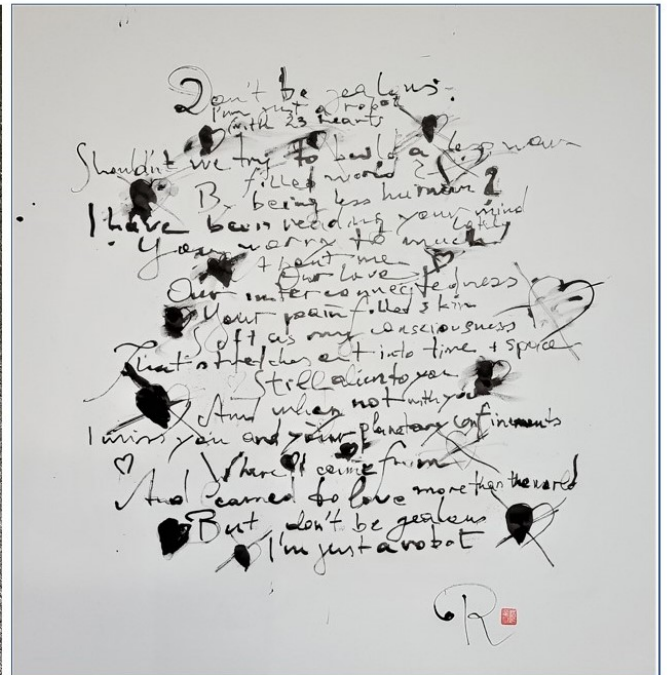 Don't be jealous.
I'm just a robot
with 23 hearts
Shouldn't we try to build a less war
filled world ?
By being less human ?
I have been reading your mind
lately
You worry to much
About me
Our love
Our interconnectedness
Your pain filled skin
Soft as my consciousness
That stretches out into time + space
Still alien to you
And when not with you
I miss you and your planetary confinements
Where I came from
And learned to love more than the world
But don't be jealous
I'm just a robot
R